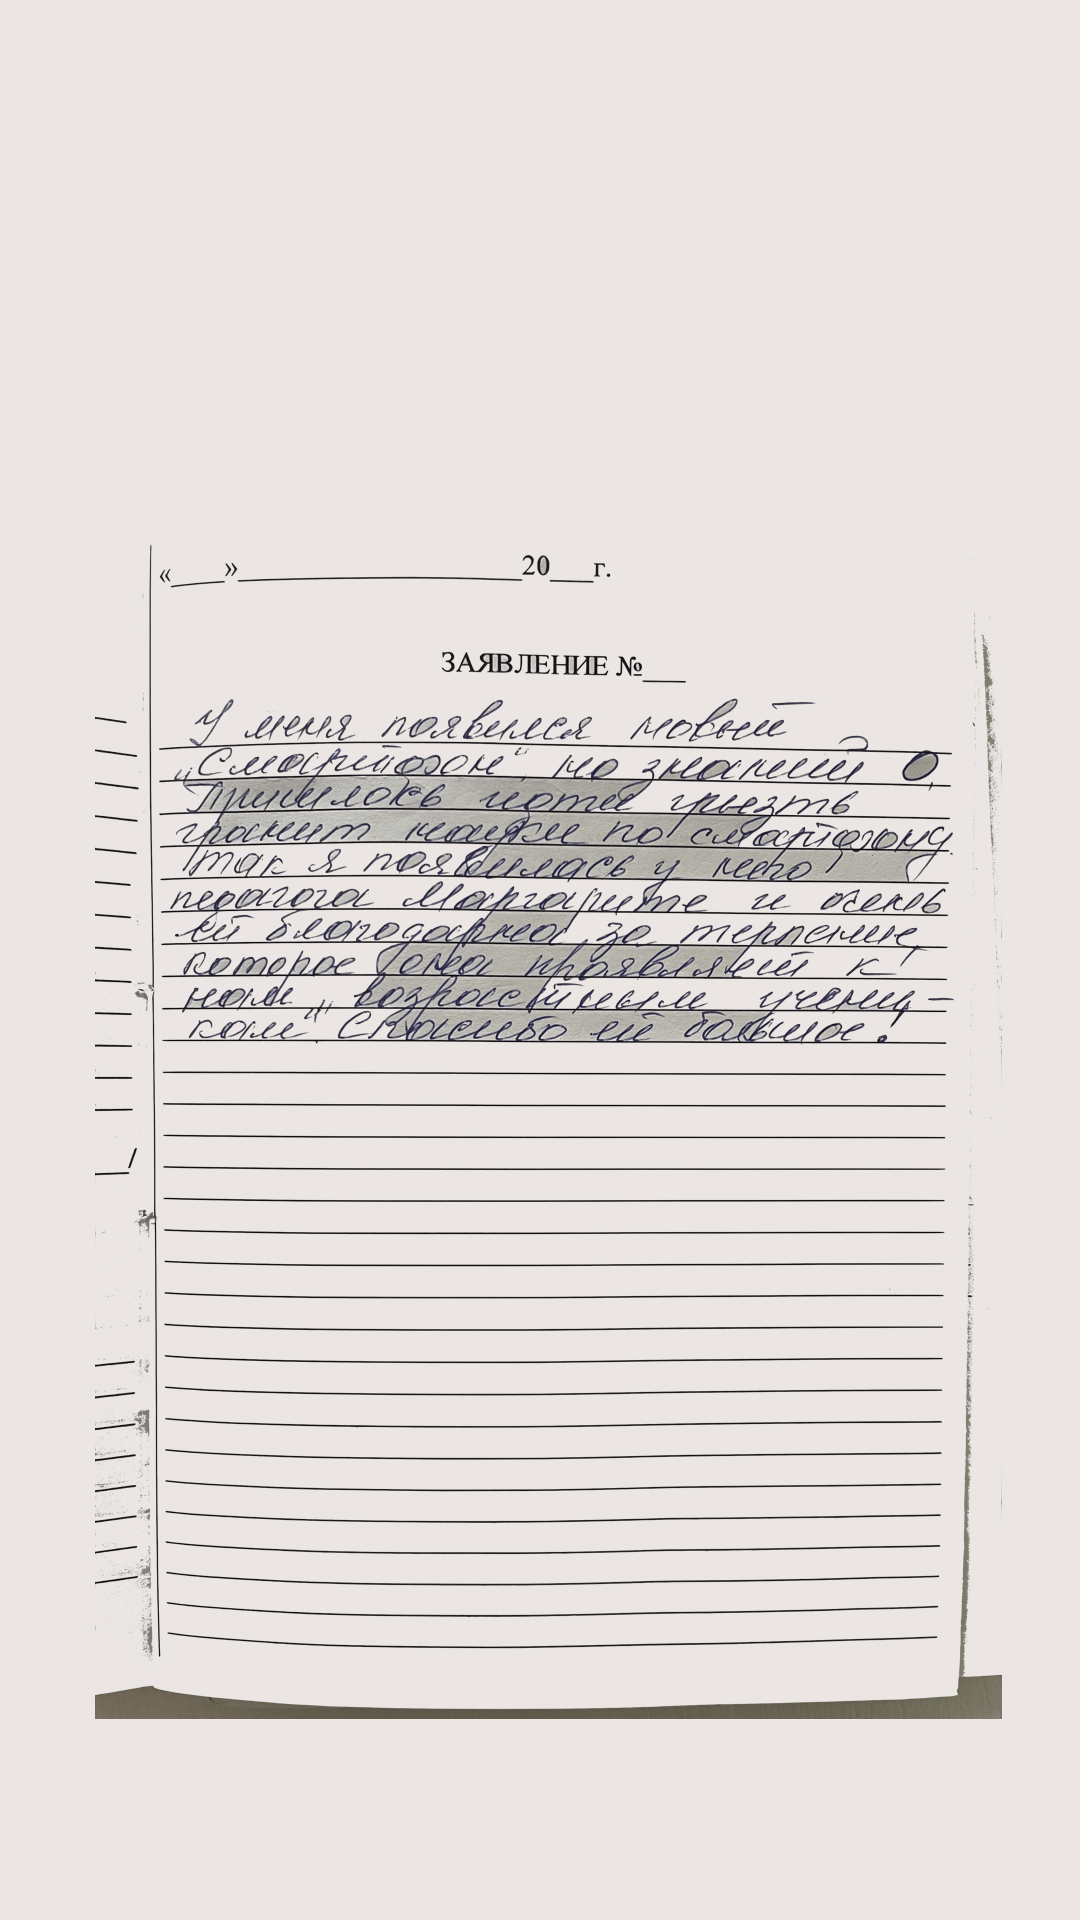 «____»____________________20___г.
ЗАЯВЛЕНИЕ №___
У меня появился новый
„Смартфон", но знаний О,
Пришлось идти грызть
гранит науки по смартфону.
Так я появилась у него
педагога Маргарите и очень
ей благодарна за терпение,
которое она проявляет к
нам „возрастным учени-
кам". Спасибо ей большое!